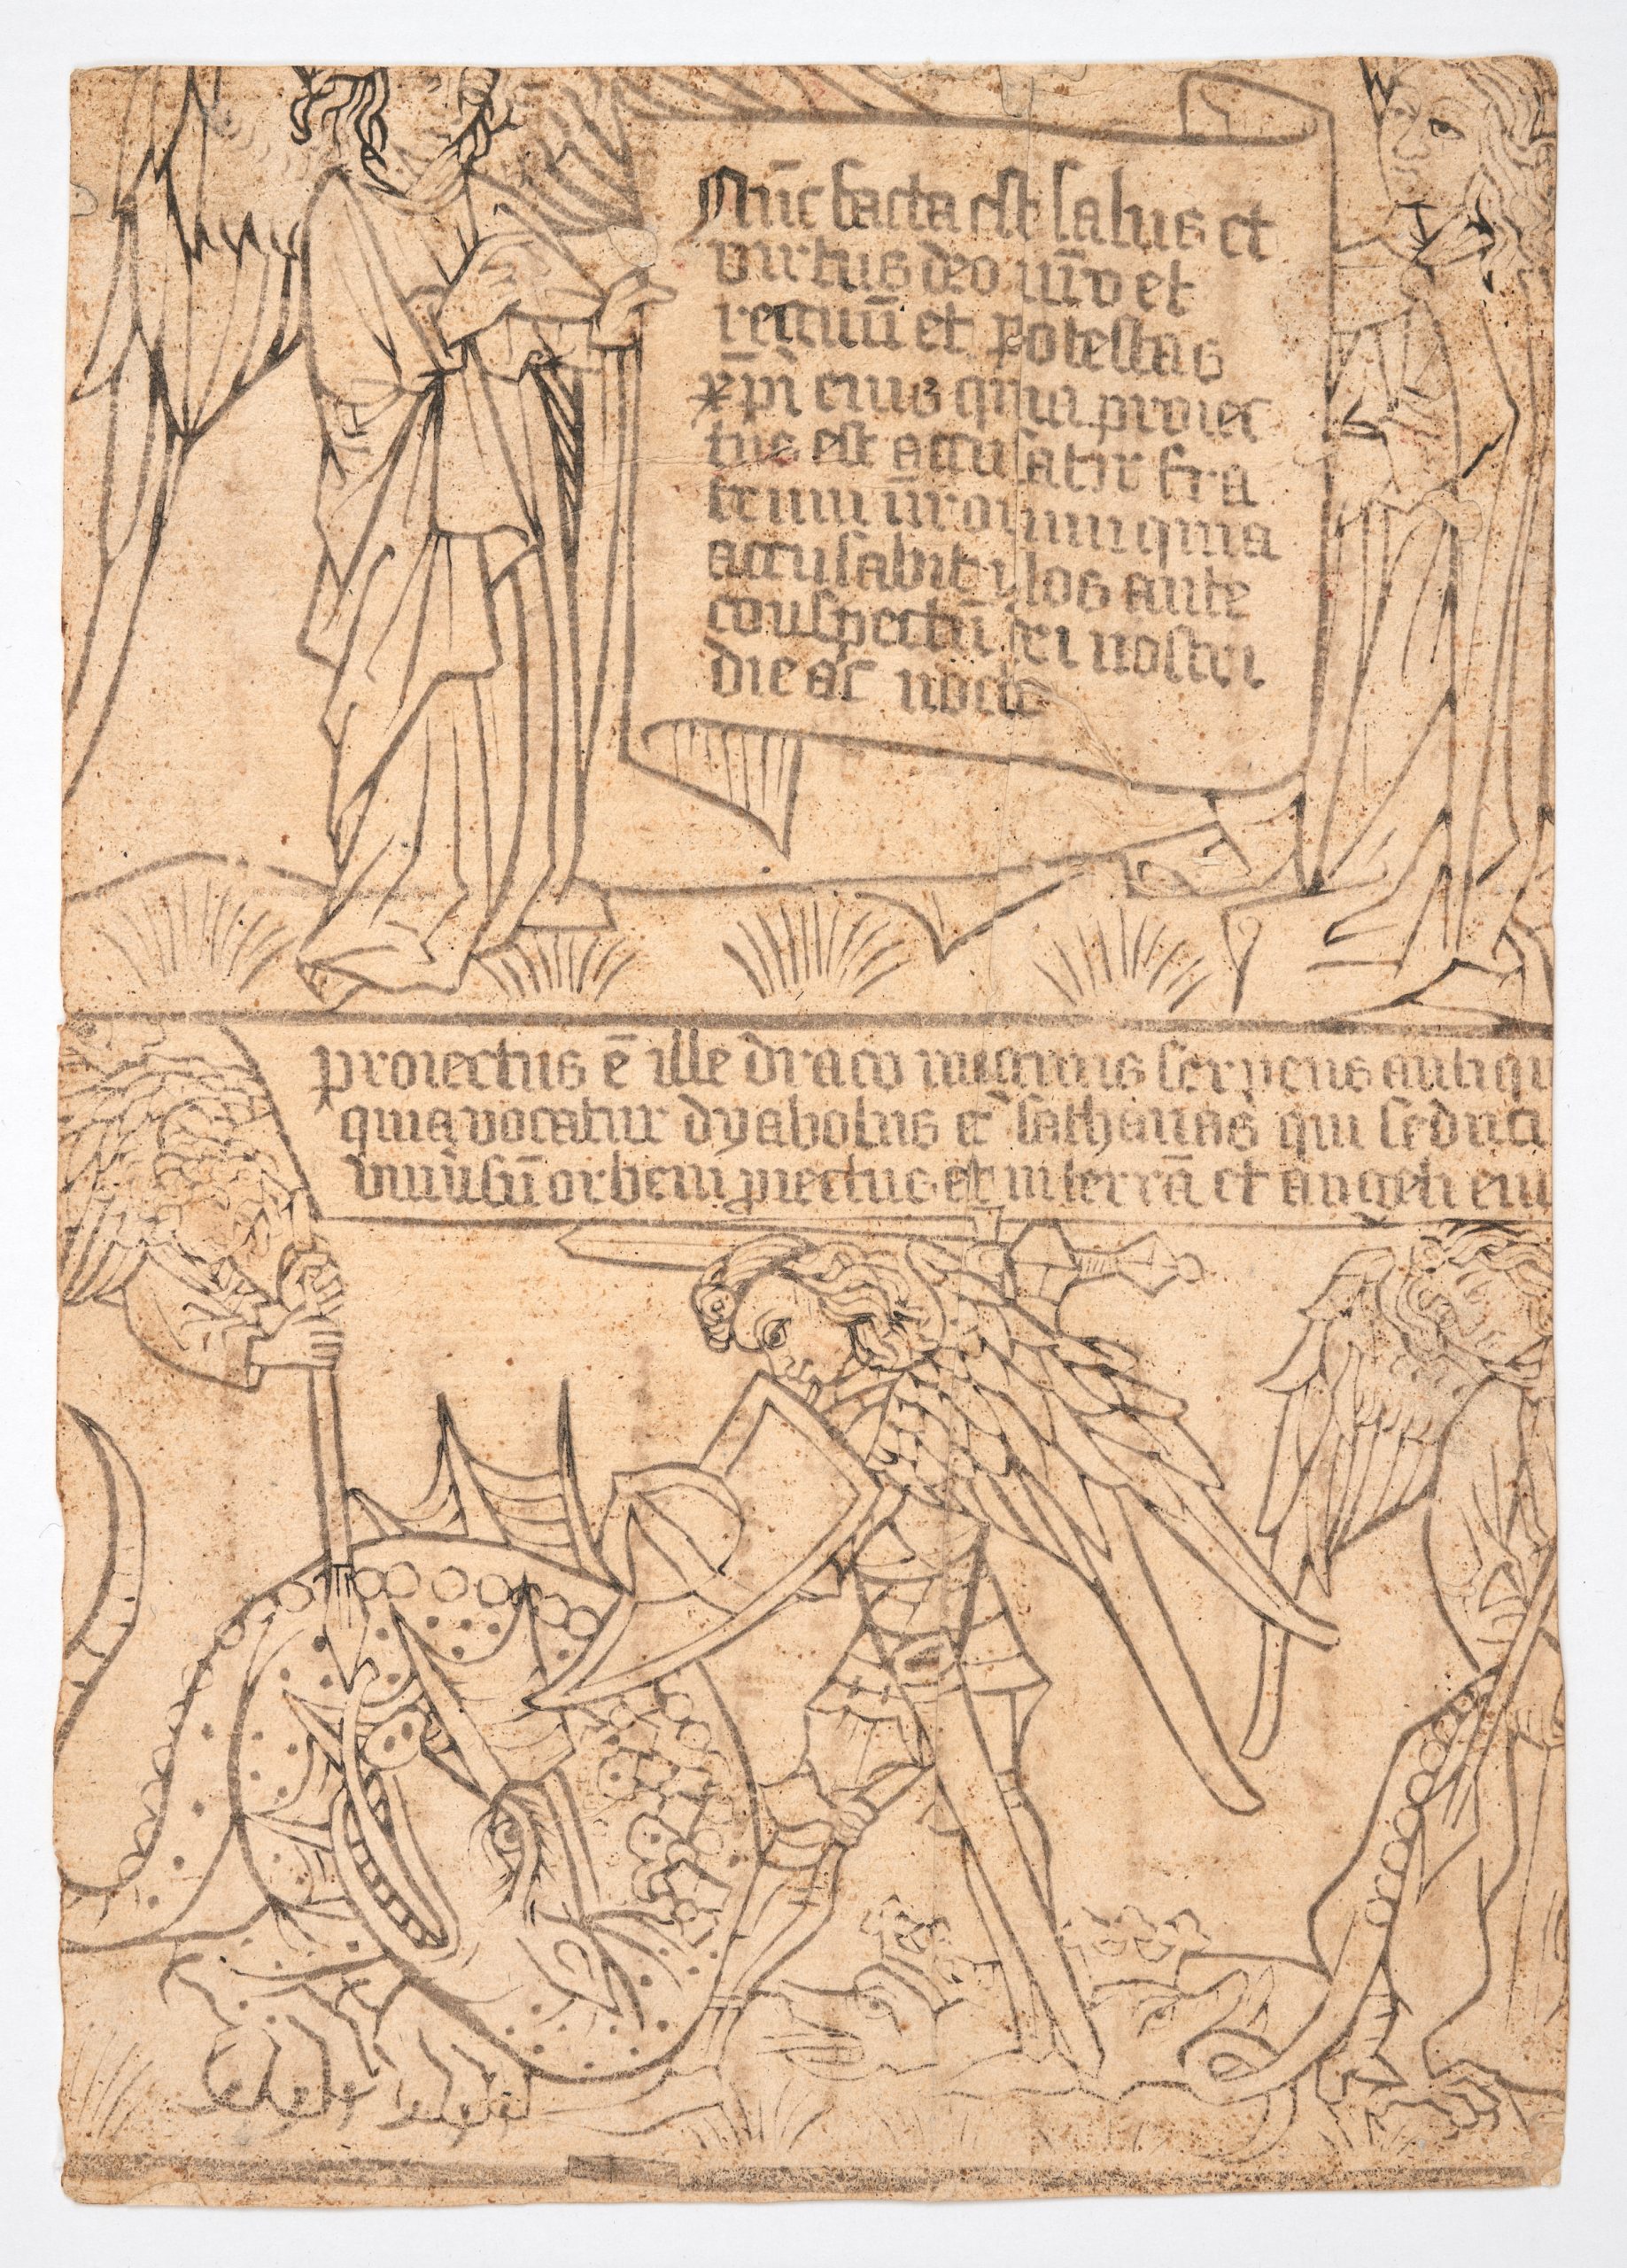 Nūc facta est salus et
virtus deo nr̄o et
regnū et potestas
xp̄i eius quia proiec
tus est accusator fra
trum nr̄orum quia
accusabit ylos ante
conspectū dei nostri
die ac nocte
proiectus ē ille draco magnus serpens antiqu
quia vocatur dyabolus et sathanas qui seduci
univ̄sū orbem piectus est in terrā et angeli eiu